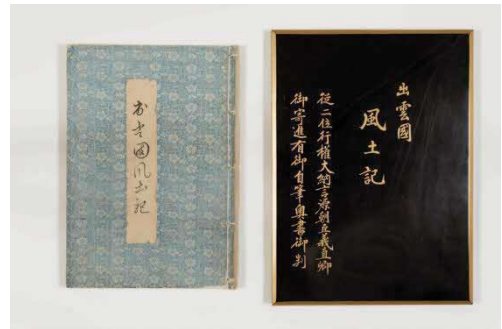 出雲國風土記
出雲國
風土記
従二位行権大納言源朝臣義直卿
御寄進有御自筆奥書御判